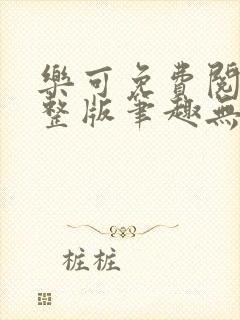 樂可免費閱
整版筆趣無
桩桩